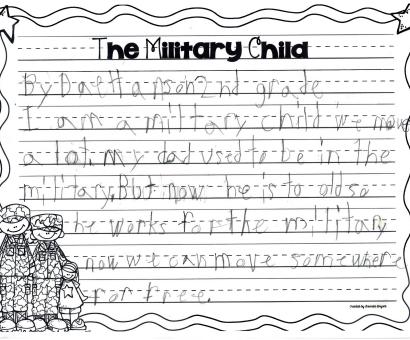 The Military Child
By Dae Hanson 2nd grade
I am a military child we move
a lot. my dad used to be in the
military. But now he is to old so
he works for the military
now we can move somewhere
for free.